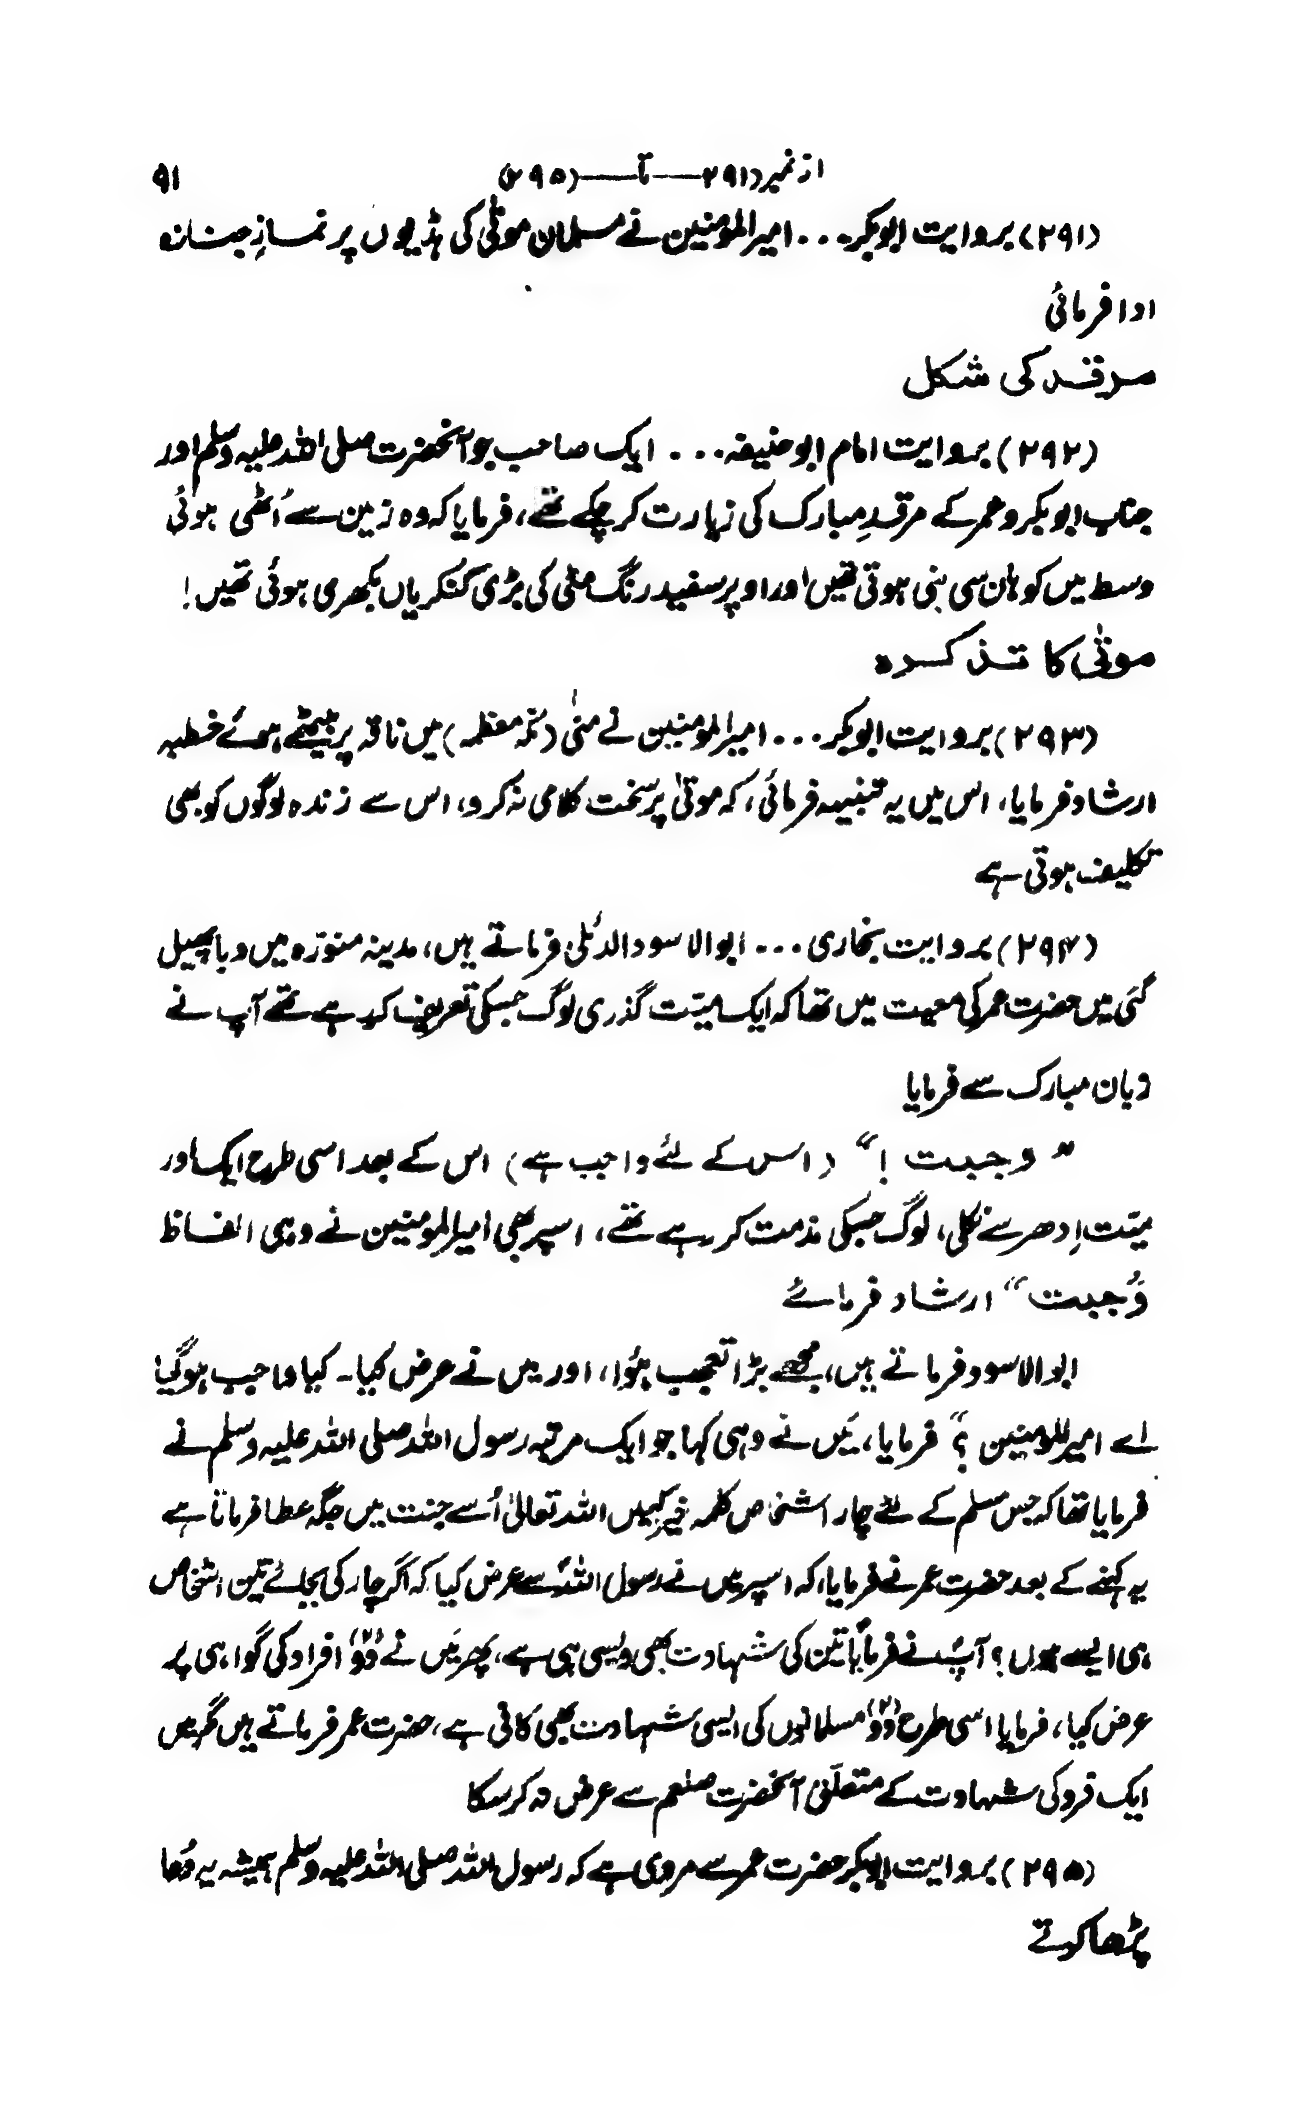 از نمبر (۲۹۱ــــ تا ــــ (۲۹۵) ۹۱
(۲۹۱) بروایت ابوبکر... امیرالمومنین نے مسلمان موتٰی کی ہڈیوں پر نمازِ جنازہ
ادا فرمائی
مرقد کی شکل
(۲۹۲) بروایت امام ابوحنیفہ... ایک صاحب جو آنحضرت صلی اللہ علیہ وسلم اور
جناب ابوبکر و عمر کے مرقدِ مبارک کی زیارت کر چکے تھے، فرمایا کہ وہ زمین سے اُٹھی ہوئی
وسط میں کوہان سی بنی ہوتی تھیں اور اوپر سفید رنگ مٹی کی بڑی کنکریاں بکھری ہوئی تھیں!
موتٰی کا تذکرہ
(۲۹۳) بروایت ابوبکر... امیرالمومنین نے منٰی (مکہ معظمہ) میں ناقہ پر بیٹھے ہوئے خطبہ
ارشاد فرمایا، اس میں یہ تنبیہہ فرمائی، کہ موتیٰ پر سخت کلامی نہ کرو، اس سے زندہ لوگوں کو بھی
تکلیف ہوتی ہے
(۲۹۴) بروایت بخاری... ابوالاسود الدئلی فرماتے ہیں، مدینہ منوّرہ میں وبا پھیل
گئی میں حضرت عمر کی معیت میں تھا کہ ایک میّت گذری لوگ جسکی تعریف کر رہے تھے آپ نے
زبان مبارک سے فرمایا
” وجبت !“ (اس کے لئے واجب ہے) اس کے بعد اسی طرح ایک اور
میّت اِدھر سے نکلی، لوگ جسکی مذمت کر رہے تھے، اسپر بھی امیرالمومنین نے وہی الفاظ
وَجبت“ ارشاد فرمائے
ابوالاسود فرماتے ہیں، مجھے بڑا تعجب ہُوا، اور میں نے عرض کیا۔ کیا واجب ہو گیا
اے امیرالمومنین ؟“ فرمایا، میں نے وہی کہا جو ایک مرتبہ رسول اللہ صلی اللہ علیہ وسلم نے
فرمایا تھا کہ جس مسلم کے لئے چار اشخاص کلمہ خیر کہیں اللہ تعالیٰ اُسے جنت میں جگہ عطا فرماتا ہے
یہ کہنے کے بعد حضرت عمر نے فرمایا، کہ اسپر میں نے رسول اللہؐ سے عرض کیا کہ اگر چار کی بجائے تین اشخاص
ہی ایسے ہوں؟ آپؐ نے فرمایا تین کی شہادت بھی ویسی ہی ہے، پھر میں نے دوؔ افراد کی گواہی پر
عرض کیا، فرمایا اسی طرح دوؔ مسلمانوں کی ایسی شہادت بھی کافی ہے، حضرت عمر فرماتے ہیں مگر میں
ایک فرد کی شہادت کے متعلّق آنحضرت صلعم سے عرض نہ کر سکا
(۲۹۵) بروایت ابوبکر حضرت عمر سے مروی ہے کہ رسول اللہ صلی اللہ علیہ وسلم ہمیشہ یہ دُعا
پڑھا کرتے